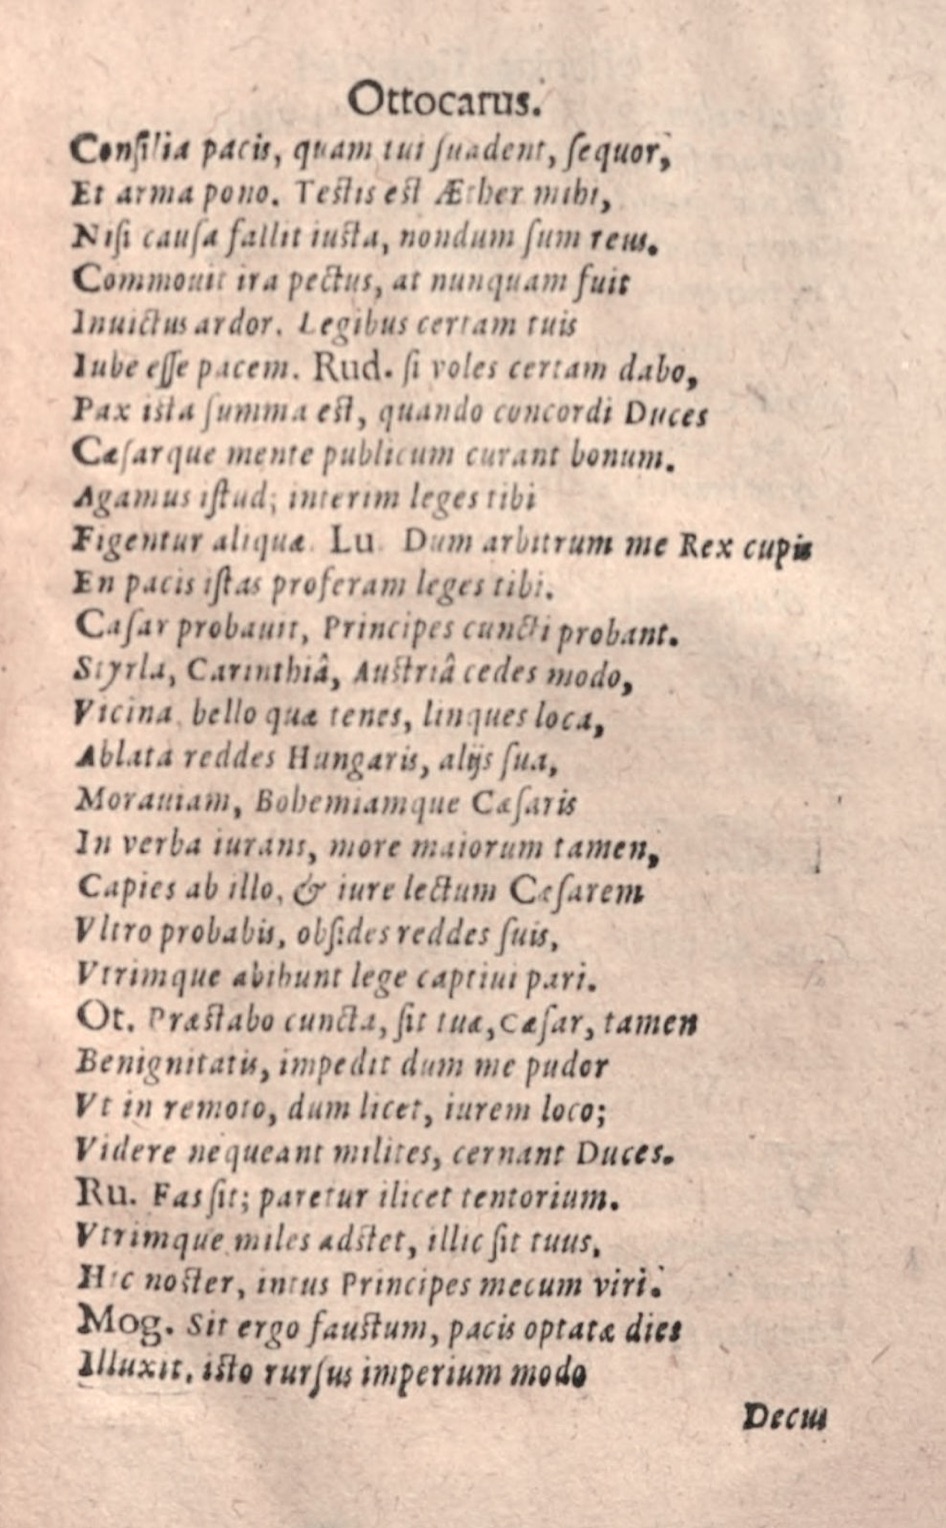 Ottocarus.
Conſilia pacis, quam tui ſuadent, ſequor,
Et arma pono. Testis est Æther mihi,
Niſi cauſa fallit iusta, nondum ſum reus.
Commouit ira pectus, at nunquam fuit
Inuictus ardor. Legibus certam tuis
Iube eſſe pacem. Rud. ſi voles certam dabo,
Pax ista ſumma est, quando concordi Duces
Cæſarque mente publicum curant bonum.
Agamus iſtud; interim leges tibi
Figentur aliquæ. Lu. Dum arbitrum me Rex cupis
En pacis iſtas proferam leges tibi.
Cæſar probauit, Principes cuncti probant.
Styrla, Carinthiâ, Austriâ cedes modo,
Vicina bello quæ tenes, linques loca,
Ablata reddes Hungaris, alijs ſua,
Morauiam, Bohemiamque Cæſaris
In verba iurans, more maiorum tamen,
Capies ab illo, & iure lectum Cæſarem
Vltro probabis, obſides reddes ſuis,
Vtrimque abibunt lege captiui pari.
Ot. Præstabo cuncta, ſit tuæ, Cæſar, tamen
Benignitatis, impedit dum me pudor
Vt in remoto, dum licet, iurem loco;
Videre nequeant milites, cernant Duces.
Ru. Fas ſit; paretur ilicet tentorium.
Vtrimque miles adstet, illic ſit tuus,
Hic noster, intus Principes mecum viri.
Mog. Sit ergo faustum, pacis optatæ dies
Illuxit, isto rurſus imperium modo
Decus